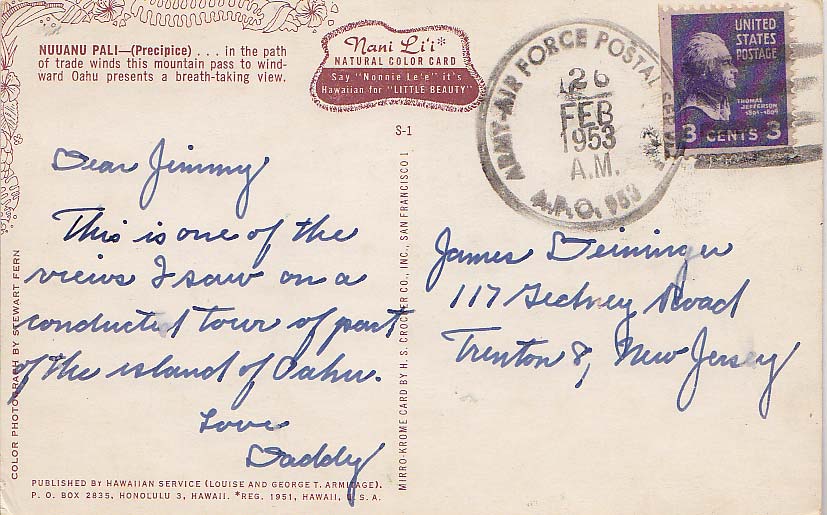 NUUANU PALI—(Precipice) . . . in the path
of trade winds this mountain pass to wind-
ward Oahu presents a breath-taking view.
Nani Li'i*
NATURAL COLOR CARD
Say "Nonnie Le'e" it's
Hawaiian for "LITTLE BEAUTY"
S-1
ARMY-AIR FORCE POSTAL
26
FEB
1953
A.M.
A.P.O. 953
UNITED
STATES
POSTAGE
THOMAS
JEFFERSON
1801-1809
3 CENTS 3
Dear Jimmy
This is one of the
views I saw on a
conducted tour of part
of the island of Oahu.
Love
Daddy
James Deininger
117 Gedney Road
Trenton 8, New Jersey
COLOR PHOTOGRAPH BY STEWART FERN
MIRRO-KROME CARD BY H. S. CROCKER CO., INC., SAN FRANCISCO 1
PUBLISHED BY HAWAIIAN SERVICE (LOUISE AND GEORGE T. ARMITAGE).
P. O. BOX 2835, HONOLULU 3, HAWAII. *REG. 1951, HAWAII, U.S.A.